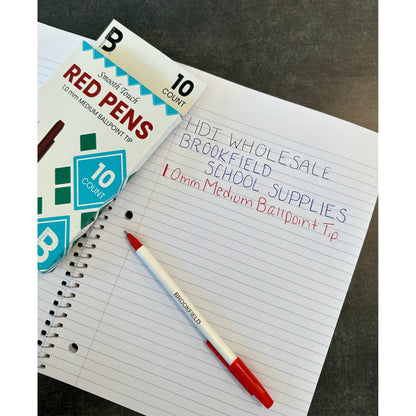 B
10
COUNT
Smooth Touch
RED PENS
1.0 mm MEDIUM BALLPOINT TIP
10
COUNT
B
HDI WHOLESALE
BROOKFIELD
SCHOOL SUPPLIES
1.0mm Medium Ballpoint Tip
BROOKFIELD